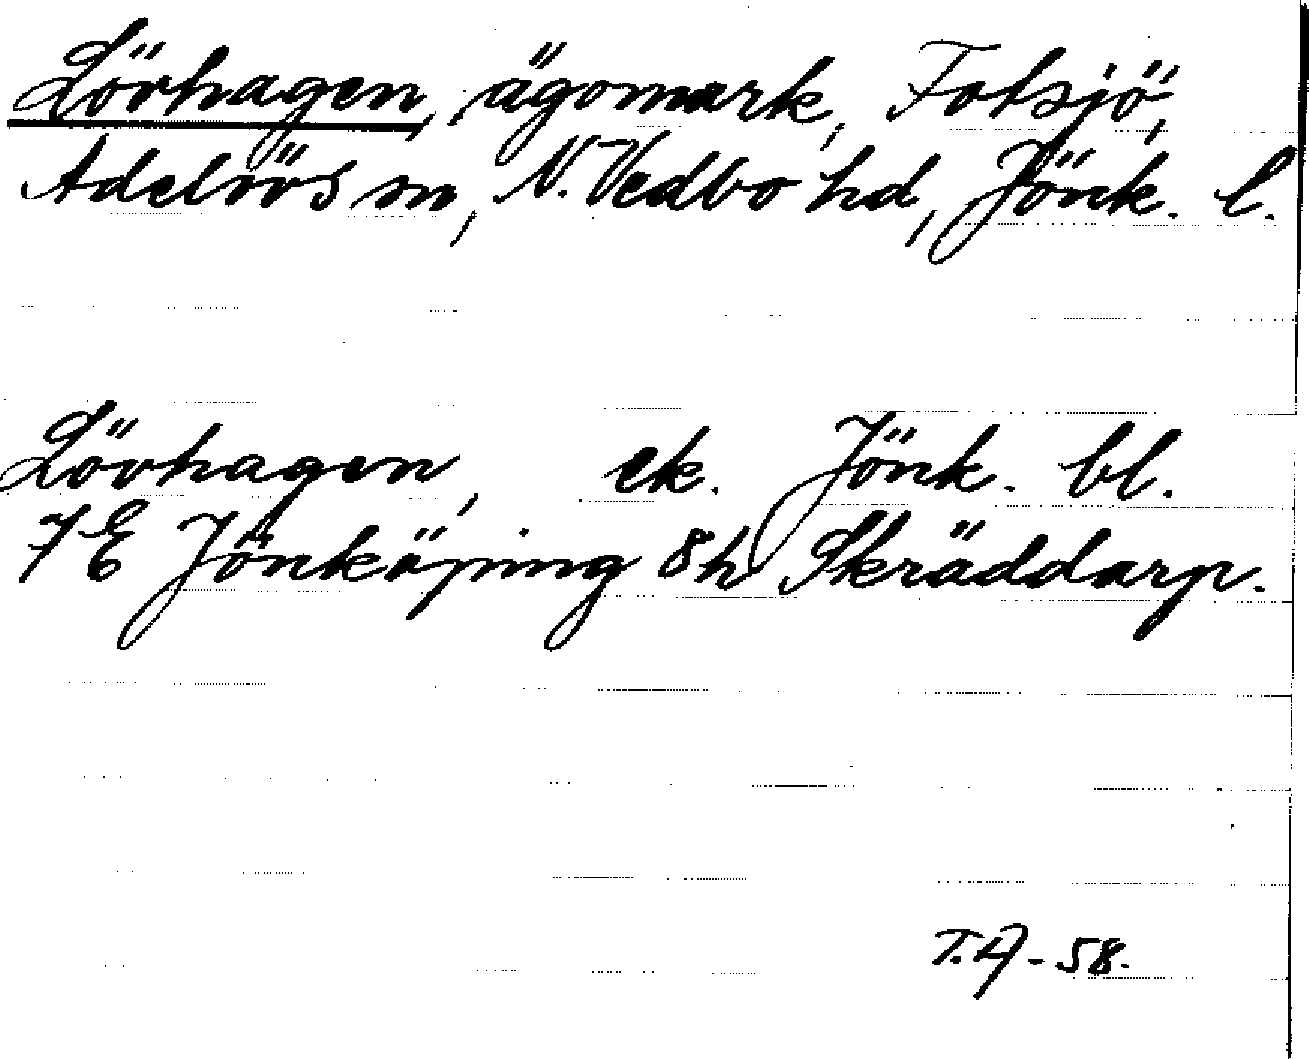 Lövhagen, ägomark, Fotsjö,
Adelövs sn, N. Vedbo hd, Jönk. l.
Lövhagen, ek. Jönk. bl.
7E Jönköping 8h Skräddarp.
T.A-58.